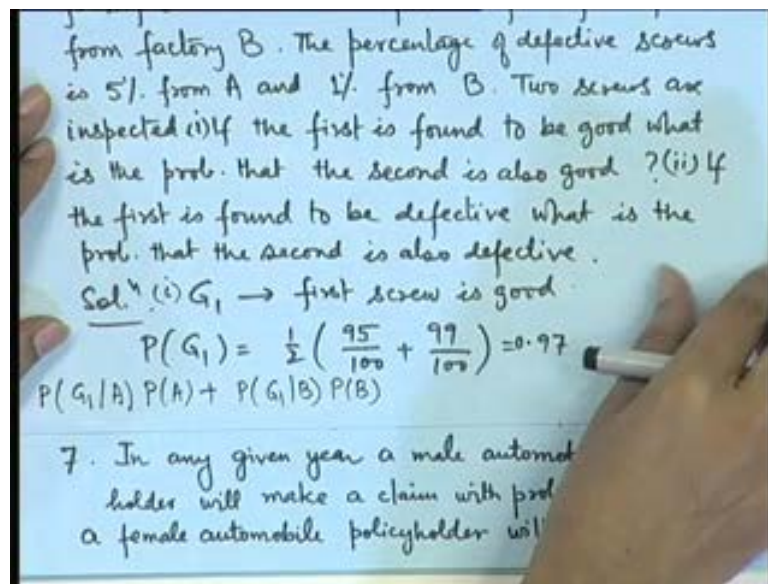 from factory B. The percentage of defective screws
is 5%. from A and 1% from B. Two screws are
inspected (i) If the first is found to be good what
is the prob. that the second is also good ? (ii) If
the first is found to be defective what is the
prob. that the second is also defective.
Solⁿ. (i) G₁ → first screw is good
P(G₁) = 1/2 ( 95/100 + 99/100 ) = 0.97
P(G₁/A) P(A) + P(G₁/B) P(B)
7. In any given year a male
holder will make a claim with
a female automobile policyholder